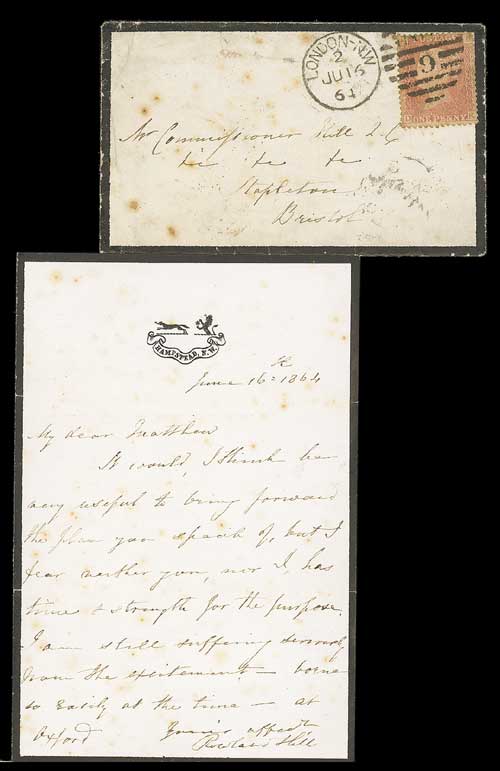 LONDON-N.W
2
JU 16
64
9
ONE PENNY
Mr Commissioner Hill Q.C
&c &c &c
Stapleton
Bristol
HAMPSTEAD, N.W.
June 16th 1864
My dear Matthew
It would, I think be
very useful to bring forward
the plan you speak of, but I
fear neither you, nor I, has
time & strength for the purpose.
I am still suffering seriously
from the excitement – borne
so easily at the time – at
Oxford
Yours affectly
Rowland Hill